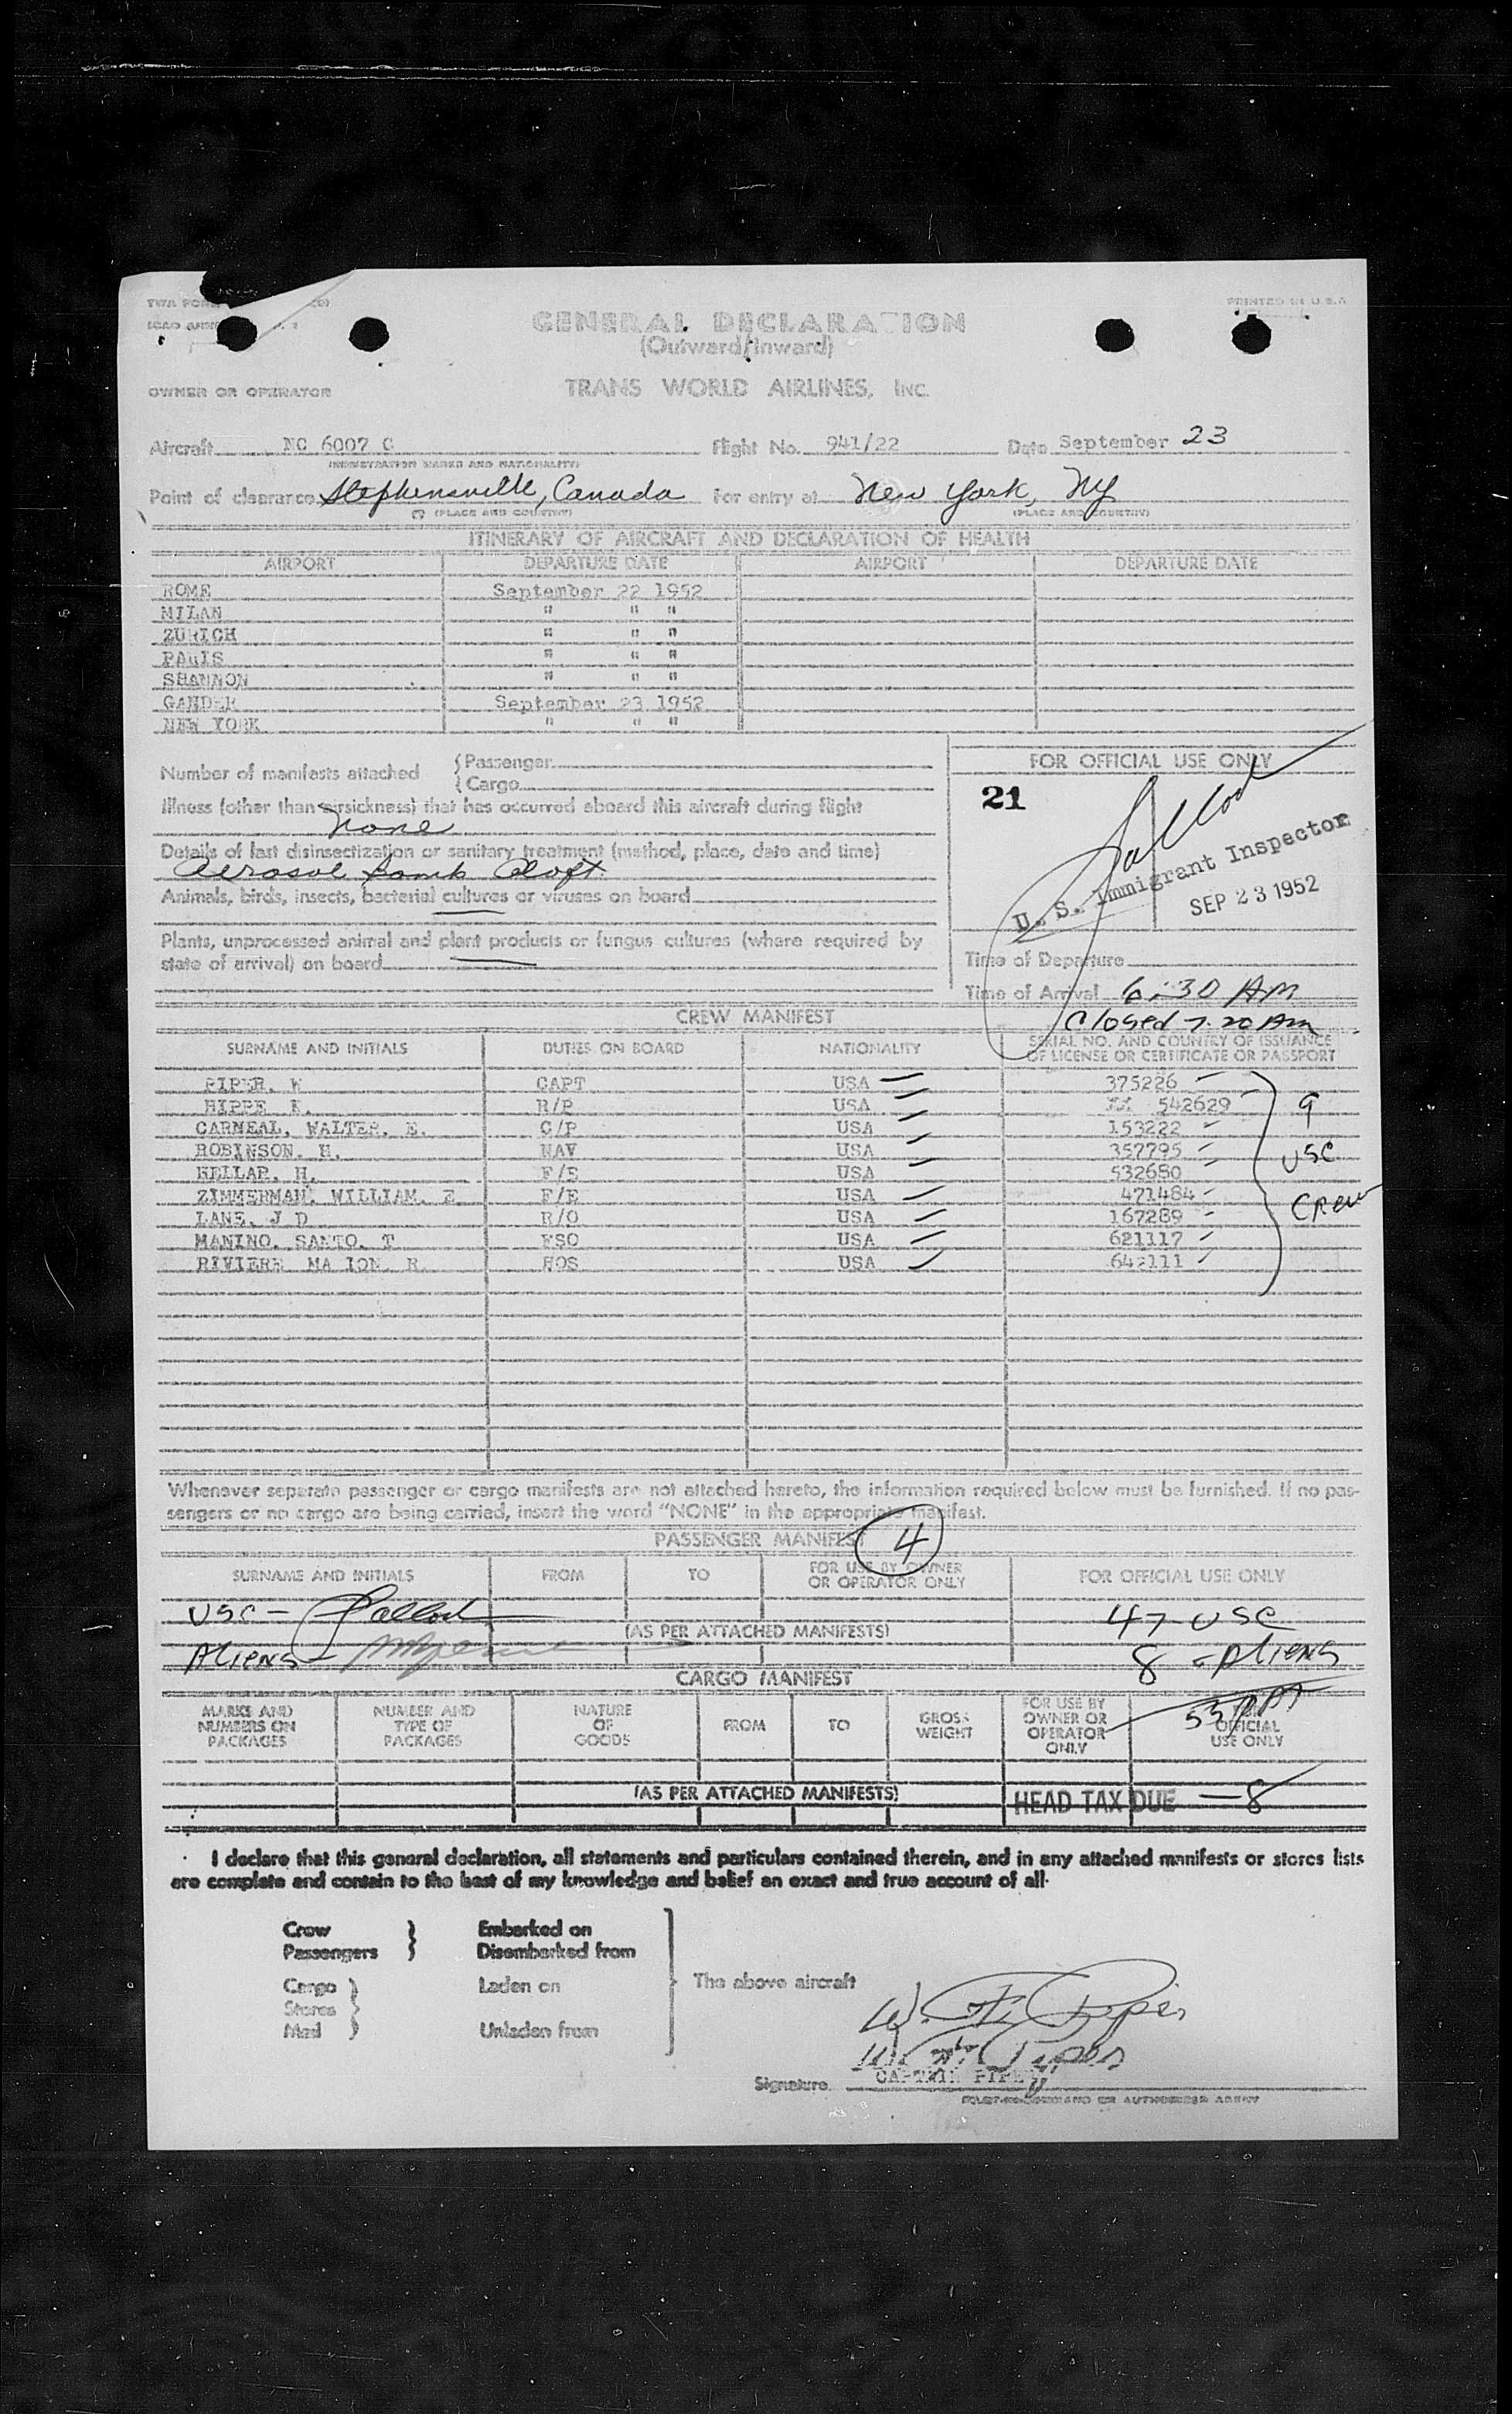 TWA FORM
PRINTED IN U.S.A
GENERAL DECLARATION
(Outward/Inward)
OWNER OR OPERATOR TRANS WORLD AIRLINES, INC.
Aircraft NC 6007 C Flight No. 941/22 Date September 23
(REGISTRATION MARKS AND NATIONALITY)
Point of clearance Stephensville, Canada For entry at New York, NY
(PLACE AND COUNTRY) (PLACE AND COUNTRY)
ITINERARY OF AIRCRAFT AND DECLARATION OF HEALTH
AIRPORT DEPARTURE DATE AIRPORT DEPARTURE DATE
ROME September 22 1952
MILAN " " "
ZURICH " " "
PARIS " " "
SHANNON " " "
GANDER September 23 1952
NEW YORK " " "
Number of manifests attached { Passenger
{ Cargo
FOR OFFICIAL USE ONLY
21
Illness (other than airsickness) that has occurred aboard this aircraft during flight
None
Details of last disinsectization or sanitary treatment (method, place, date and time)
Aerosol bomb Aloft
Animals, birds, insects, bacterial cultures or viruses on board
U. S. Immigrant Inspector
SEP 23 1952
Plants, unprocessed animal and plant products or fungus cultures (where required by
state of arrival) on board
Time of Departure
Time of Arrival 6:30 AM
Closed 7.20 Am
CREW MANIFEST
SURNAME AND INITIALS DUTIES ON BOARD NATIONALITY SERIAL NO. AND COUNTRY OF ISSUANCE
OF LICENSE OR CERTIFICATE OR PASSPORT
PIPER. W CAPT USA 375226
HIPPE K. R/P USA 542629
CARMEAL, WALTER. E. C/P USA 153222
ROBINSON. H. NAV USA 357795
KELLAR. H. F/E USA 532680
ZIMMERMAN. WILLIAM. E F/E USA 471484
LANE. J D R/O USA 167289
MANINO. SANTO. T FSO USA 621117
RIVIERE MA ION. R HOS USA
9
USC
Crew
Whenever separate passenger or cargo manifests are not attached hereto, the information required below must be furnished. If no pas-
sengers or no cargo are being carried, insert the word "NONE" in the appropriate manifest.
PASSENGER MANIFEST 4
SURNAME AND INITIALS FROM TO FOR USE BY OWNER
OR OPERATOR ONLY FOR OFFICIAL USE ONLY
USC - 47 - USC
(AS PER ATTACHED MANIFESTS)
Aliens - 8 - Aliens
CARGO MANIFEST
MARKS AND
NUMBERS ON
PACKAGES
NUMBER AND
TYPE OF
PACKAGES
NATURE
OF
GOODS
FROM TO GROSS
WEIGHT
FOR USE BY
OWNER OR
OPERATOR
ONLY
FOR
OFFICIAL
USE ONLY
55
(AS PER ATTACHED MANIFESTS) HEAD TAX DUE - 8
I declare that this general declaration, all statements and particulars contained therein, and in any attached manifests or stores lists
are complete and contain to the best of my knowledge and belief an exact and true account of all.
Crew } Embarked on
Passengers } Disembarked from
Cargo } Laden on The above aircraft
Stores
Mail } Unladen from
W. Piper
W. Piper
Signature CAPTAIN PIPER
PILOT-IN-COMMAND OR AUTHORIZED AGENT